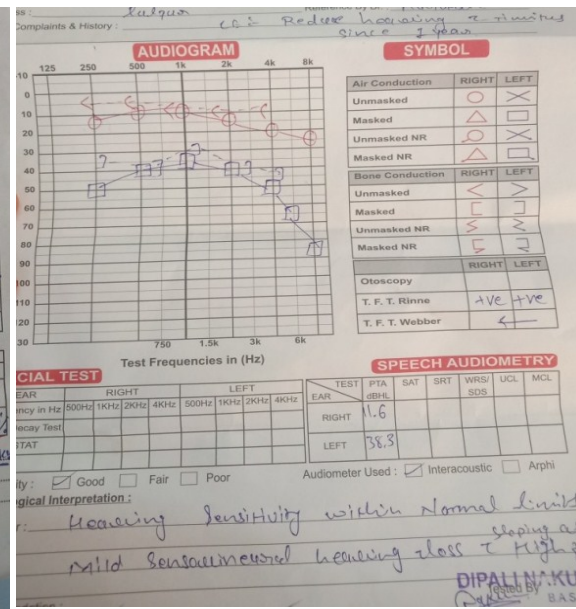 Complaints & History : c/o Reduce hearing c tinnitus
since 1 year
AUDIOGRAM
SYMBOL
125 250 500 1k 2k 4k 8k
-10
0
10
20
30
40
50
60
70
80
90
100
110
120
130
750 1.5k 3k 6k
Test Frequencies in (Hz)
Air Conduction RIGHT LEFT
Unmasked
Masked
Unmasked NR
Masked NR
Bone Conduction RIGHT LEFT
Unmasked
Masked
Unmasked NR
Masked NR
RIGHT LEFT
Otoscopy
T. F. T. Rinne +ve +ve
T. F. T. Webber ←
CIAL TEST
SPEECH AUDIOMETRY
EAR RIGHT LEFT
ency in Hz 500Hz 1KHz 2KHz 4KHz 500Hz 1KHz 2KHz 4KHz
Decay Test
STAT
EAR TEST PTA dBHL SAT SRT WRS/ SDS UCL MCL
RIGHT 11.6
LEFT 38.3
ity : Good Fair Poor
Audiometer Used : Interacoustic Arphi
ogical Interpretation :
Hearing Sensitivity within Normal limits
Mild Sensorineural hearing loss c sloping a
High
DIPALI N. KU
Tested By
BAS